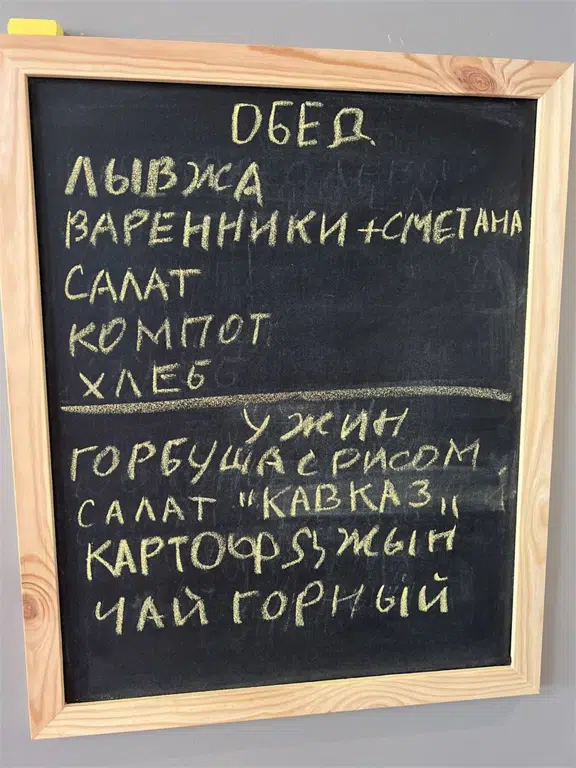 ОБЕД
ЛЫВЖА
ВАРЕННИКИ + СМЕТАНА
САЛАТ
КОМПОТ
ХЛЕБ
УЖИН
ГОРБУША С РИСОМ
САЛАТ "КАВКАЗ"
КАРТОФДЖЫН
ЧАЙ ГОРНЫЙ